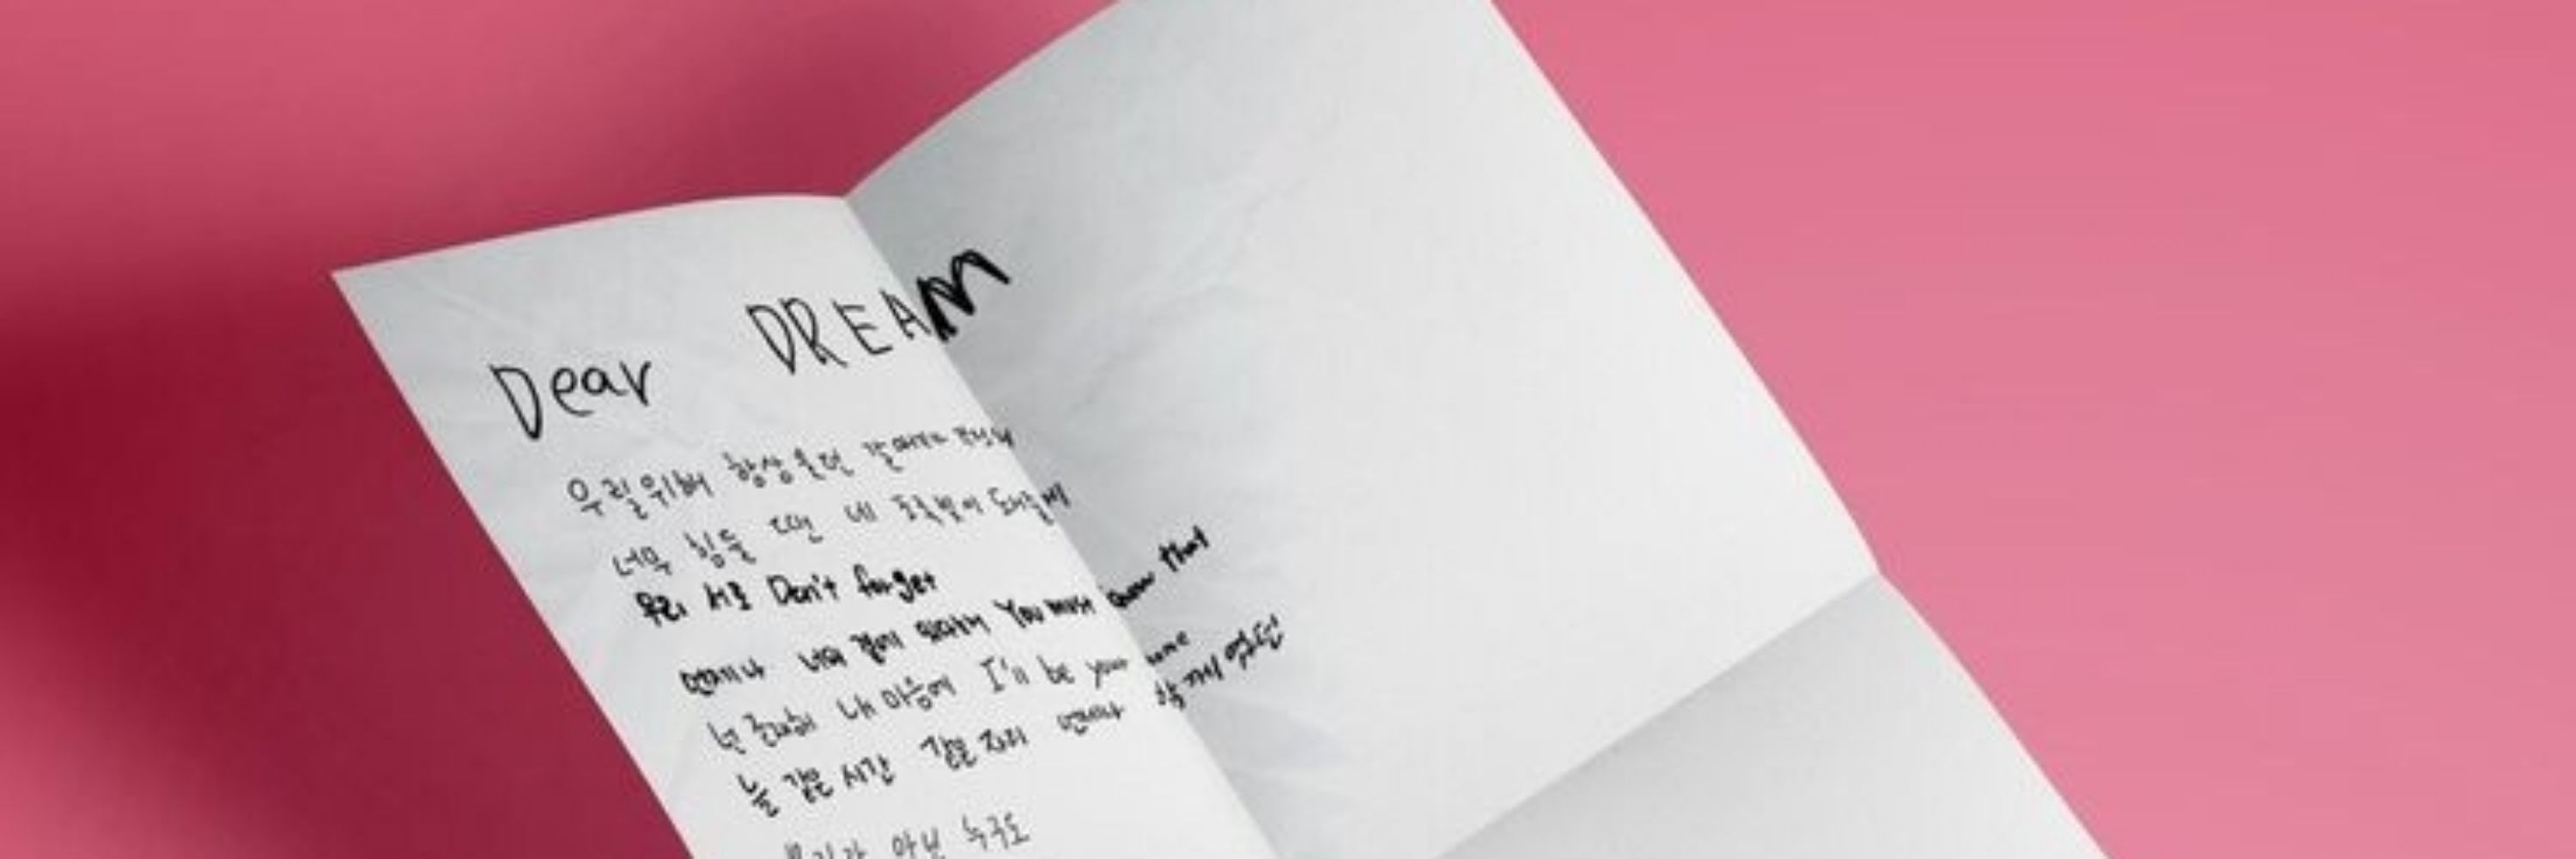 Dear DREAM
우릴위해 항상 울던
너무 힘들 때면 네
우리 서로 Don't forget
언제나 너의 곁에 있다는걸 You must know that
넌 존재해 내 마음에 I'll be your
늘 같은 시간 같은 자리 언제나 함께 였던
누구도